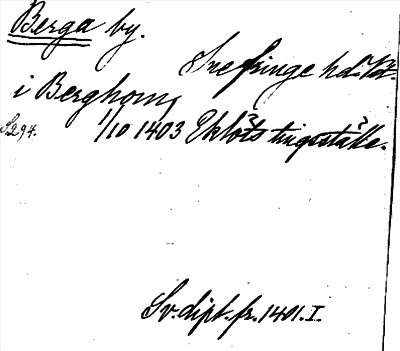 Berga by.
Svefringe hd. Br.
i Berghom,
S.294. 1/10 1403 Eklöts tingsställe.
Sv. dipl. fr. 1401. I.